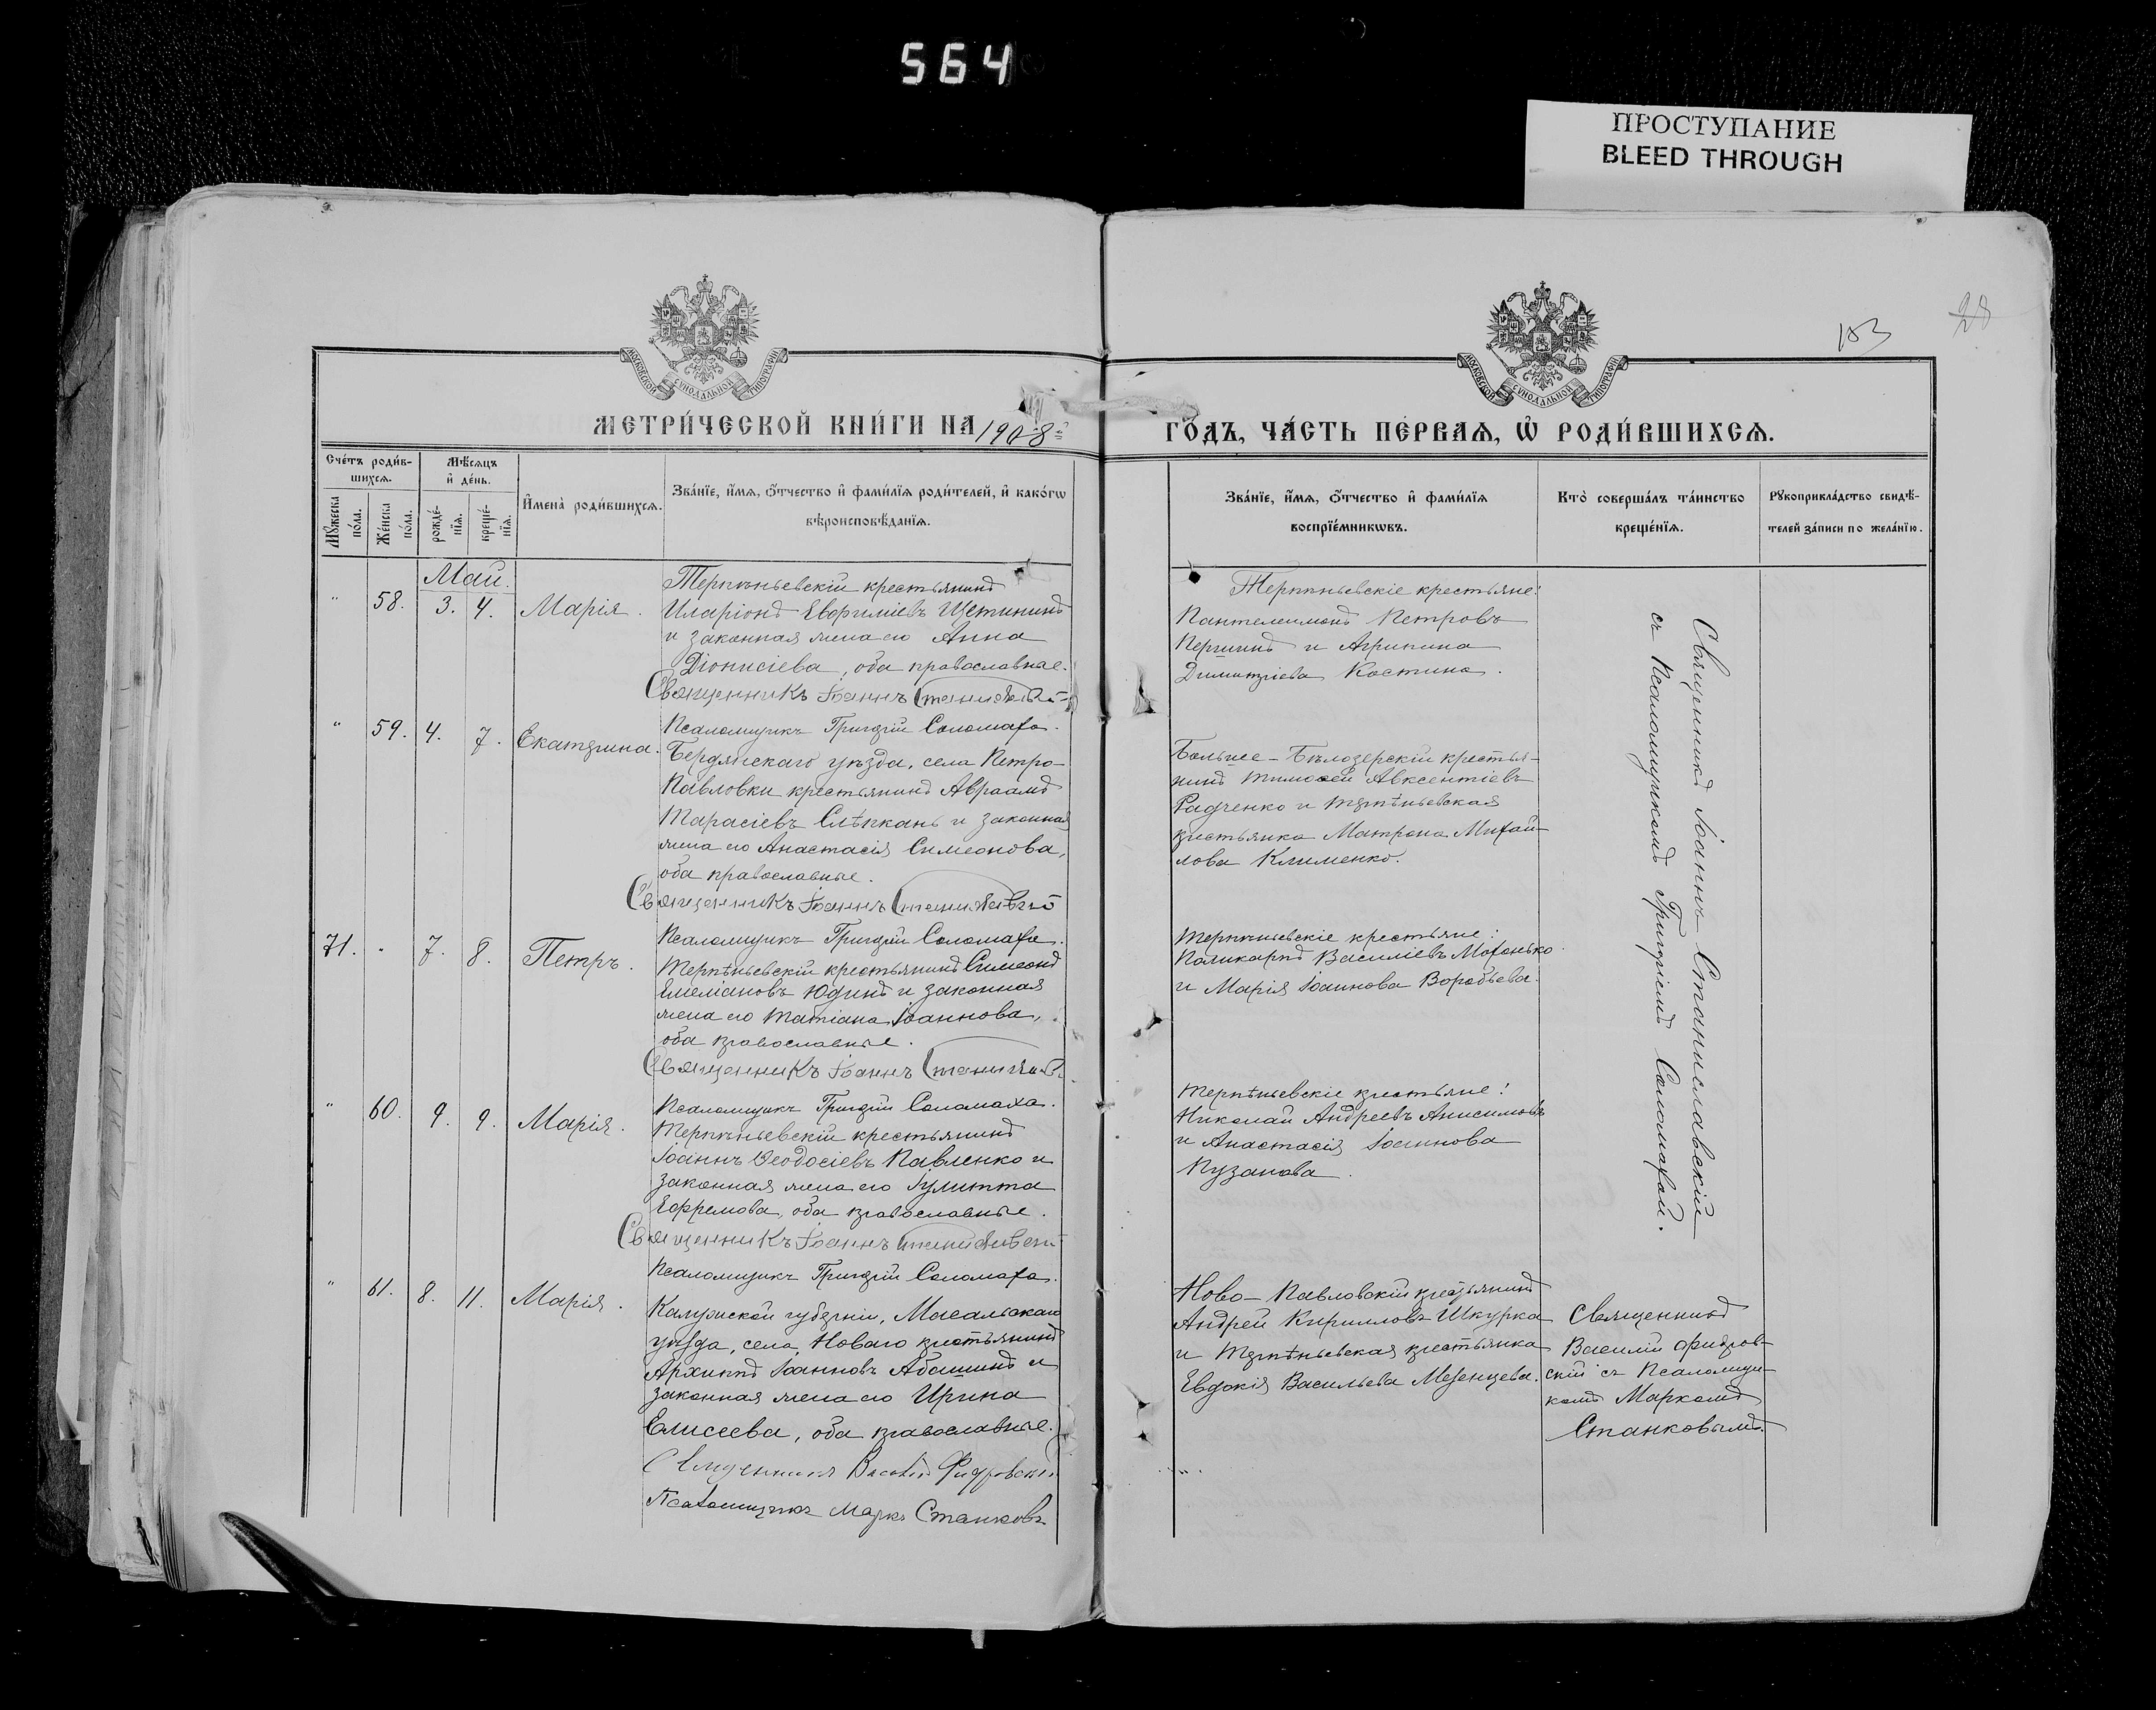 564
ПРОСТУПАНИЕ
BLEED THROUGH
183
28
МОСКОВСКОЙ СУНОДАЛЬНОЙ ТИПОГРАФІИ
МОСКОВСКОЙ СУНОДАЛЬНОЙ ТИПОГРАФІИ
МЕТРИ́ЧЕСКОЙ КНИ́ГИ НА 1908 й
ГО́ДЪ, ЧА́СТЬ ПЕ́РВАѦ, Ѡ҆ РОДИ́ВШИХСѦ.
Сче́тъ роди́в-
шихсѧ.
Мѣ́сѧцъ
и҆ де́нь.
И҆мена̀ роди́вшихсѧ.
Зва́нїе, и҆́мѧ, ѻ҆́тчество и҆ фами́лїѧ роди́телей, и҆ како́гѡ
вѣроисповѣ́данїѧ.
Мꙋ́жеска
по́ла.
Же́нска
по́ла.
рожде́-
нїѧ.
креще́-
нїѧ.
Зва́нїе, и҆́мѧ, ѻ҆́тчество и҆ фами́лїѧ
воспрїе́мникѡвъ.
Кто̀ соверша́лъ та́инство
креще́нїѧ.
Рꙋкоприкла́дство свидѣ́-
телей за́писи по жела́нїю.
Май.
" 58. 3. 4. Марія.
Терпѣньевскій крестьянинъ
Иларіонъ Евфиміевъ Щетининъ
и законная жена его Анна
Діонисіева, оба православные.
Священникъ Іоаннъ Станиславскій
Псаломщикъ Григорій Соломаха.
Терпѣньевскіе крестьяне:
Пантелеимонъ Петровъ
Першинъ и Агрипина
Димитріева Костина.
" 59. 4. 7. Екатерина.
Бердянскаго уѣзда, села Петро-
Павловки крестьянинъ Авраамъ
Тарасіевъ Слѣпкань и законная
жена его Анастасія Симеонова,
оба православные.
Священникъ Іоаннъ Станиславскій
Псаломщикъ Григорій Соломаха.
Больше-Бѣлозерскій крестья-
нинъ Тимоѳей Авксентіевъ
Радченко и Терпѣньевская
крестьянка Матрона Михай-
лова Клименко.
71. " 7. 8. Петръ.
Терпѣньевскій крестьянинъ Симеонъ
Емеліановъ Юдинъ и законная
жена его Татіана Іоаннова,
оба православные.
Священникъ Іоаннъ Станиславскій
Псаломщикъ Григорій Соломаха.
Терпѣньевскіе крестьяне:
Поликарпъ Василіевъ Мохонько
и Марія Іоаннова Воробьева.
" 60. 9. 9. Марія.
Терпѣньевскій крестьянинъ
Іоаннъ Ѳеодосіевъ Павленко и
законная жена его Іулитта
Ефремова, оба православные.
Священникъ Іоаннъ Станиславскій
Псаломщикъ Григорій Соломаха.
Терпѣньевскіе крестьяне:
Николай Андреевъ Анисимовъ
и Анастасія Іоаннова
Пузанова.
Священникъ Іоаннъ Станиславскій
съ Псаломщикомъ Григоріемъ Соломахой.
" 61. 8. 11. Марія.
Калужской губерніи, Масальскаго
уѣзда, села Новаго крестьянинъ
Архиппъ Іоанновъ Абашинъ и
законная жена его Ирина
Елисеева, оба православные.
Священникъ Василій Фидровскій
Псаломщикъ Маркъ Станковъ
Ново-Павловскій крестьянинъ
Андрей Кирилловъ Шкурка
и Терпѣньевская крестьянка
Евдокія Васильева Мезенцева.
Священникъ
Василій Фидров-
скій съ Псаломщи-
комъ Маркомъ
Станковымъ.